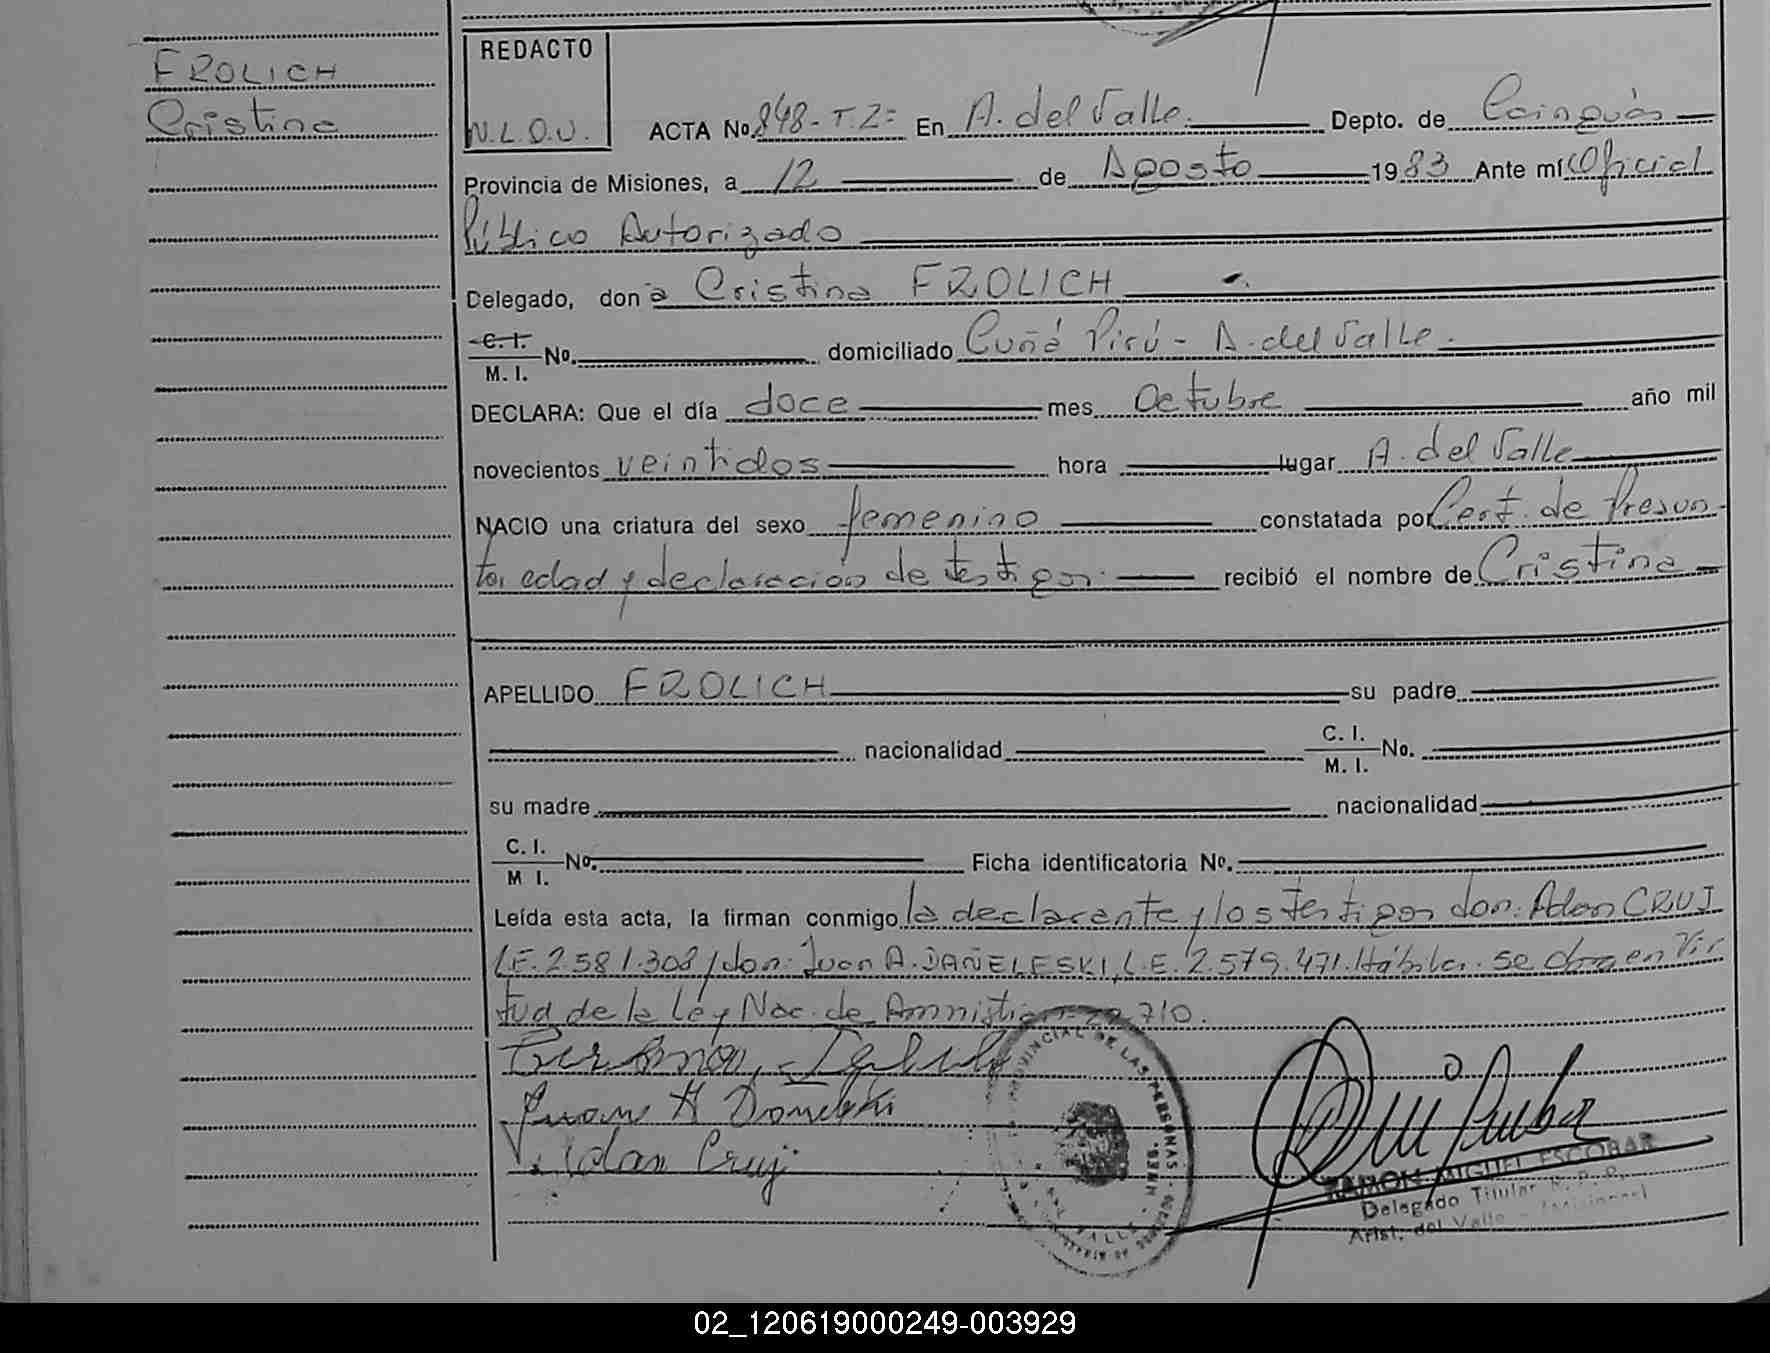 FROLICH
Cristina
REDACTO
N.L.O.U.
ACTA No. 848-T.2= En A. del Valle. Depto. de Cainguás
Provincia de Misiones, a 12 de Agosto 1983 Ante mí Oficial
Público Autorizado
Delegado, don a Cristina FROLICH
C. I.
M. I. No. domiciliado Cuñá Pirú - A. del Valle.
DECLARA: Que el día doce mes Octubre año mil
novecientos veintidos hora lugar A. del Valle
NACIO una criatura del sexo femenino constatada por Cert. de Presun-
ta edad y declaración de testigos. recibió el nombre de Cristina
APELLIDO FROLICH su padre
nacionalidad C. I.
M. I. No.
su madre nacionalidad
C. I.
M I. No. Ficha identificatoria No.
Leída esta acta, la firman conmigo la declarante y los testigos don: Adan CRUJ
L.E. 2.581.308 y don: Juan A. DAÑELESKI, L.E. 2.579.471. Hábiles. se obra en Vir
tud de la Ley Nac. de Amnistia 22.710.
Juan A
Adan Cruj
PROVINCIAL DE LAS PERSONAS
RAMON MIGUEL ESCOBAR
Delegado Titular R. P. P.
Arist. del Valle - (Misiones)
02_120619000249-003929